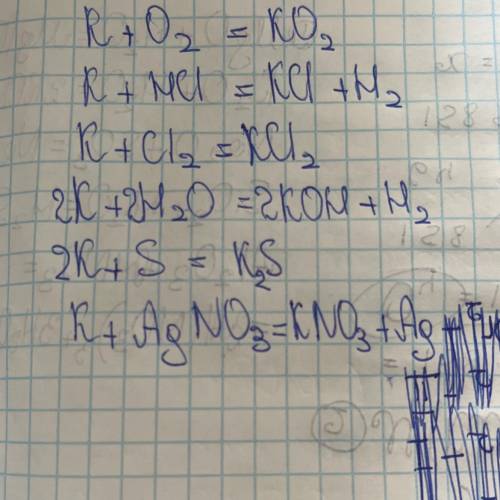 K + O₂ = KO₂
K + HCl = KCl + H₂
K + Cl₂ = KCl₂
2K + 2H₂O = 2KOH + H₂
2K + S = K₂S
K + AgNO₃ = KNO₃ + Ag